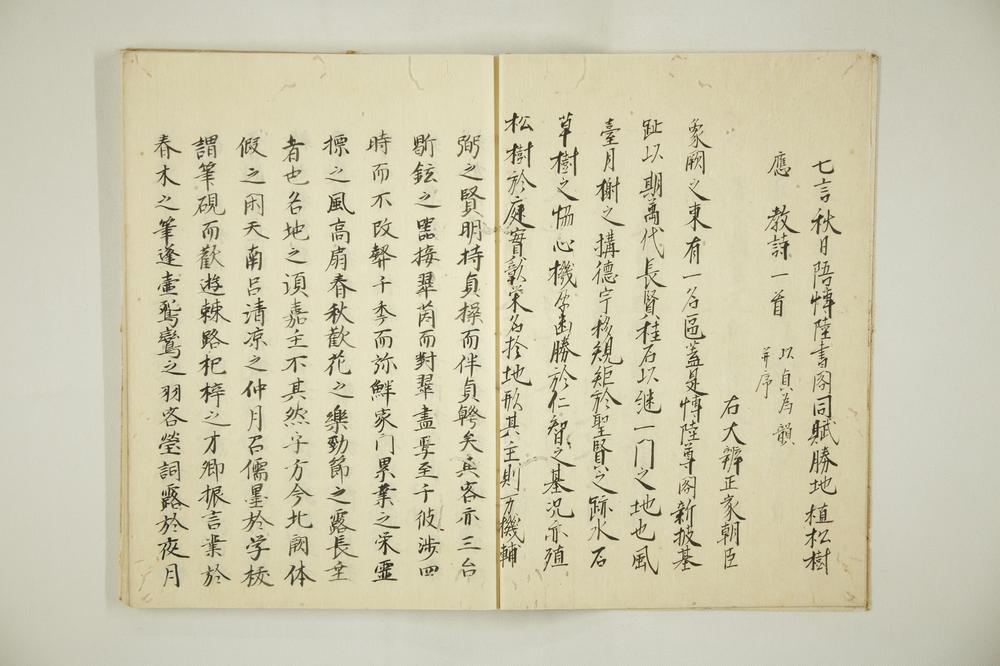 七言秋日陪博陸書閣同賦勝地植松樹
應 教詩一首 以貞為韻 并序
右大辨正家朝臣
象闕之東有一名區蓋是博陸尊閣新披基
趾以期萬代長賢桂石以继一門之地也風
臺月榭之搆德宇移規矩於聖賢之跡水石
草樹之恊心機 幽勝於仁智之基况亦殖
松樹於庭實 栄名於地形其主則万機輔
弼之賢明持貞操而伴貞幹矣其客亦三台
鼎鉉之器接翠茵而對翠盖 至于彼渉四
時而不改 千季而弥鮮家門累葉之栄霊
標之風高扇春秋歓花之樂勁節之露長垂
者也名地之頂嘉主不其然乎方今北闕休
假之閑天南呂清凉之仲月召儒墨於学校
謂筆硯而歡遊棘路杞梓之才卿振言葉於
春木之筆蓬壷鴛鸞之羽客瑩詞露於夜月